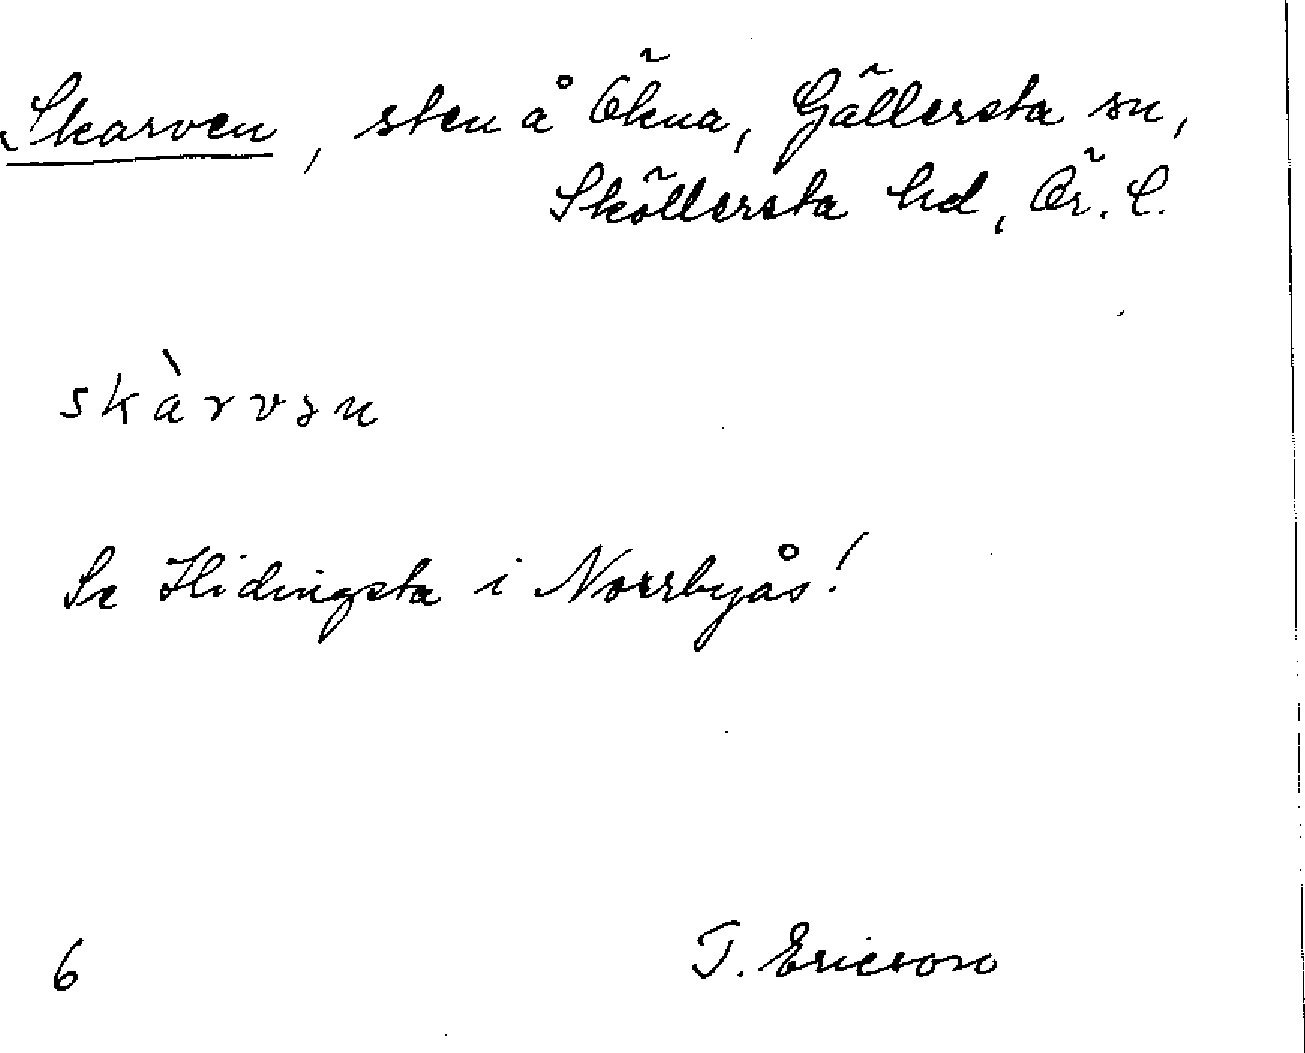 Skarven, sten å Ökna, Gällersta sn,
Sköllersta hd, Ör. l.
skàrvən
Se Hidingsta i Norrbyås!
6
T. Ericson